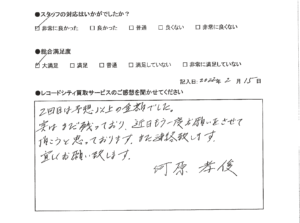 ●スタッフの対応はいかがでしたか?
□非常に良かった □良かった □普通 □良くない □非常に良くない
●総合満足度
□大満足 □満足 □普通 □満足していない □非常に満足していない
記入日:2024年2月15日
●レコードシティ買取サービスのご感想を聞かせてください
2回目は予想以上の金額でした。
実はまだ残っており、近日もう一度お願いをさせて
頂こうと思っております。また連絡致します。
宜しくお願い致します。
河原 孝俊